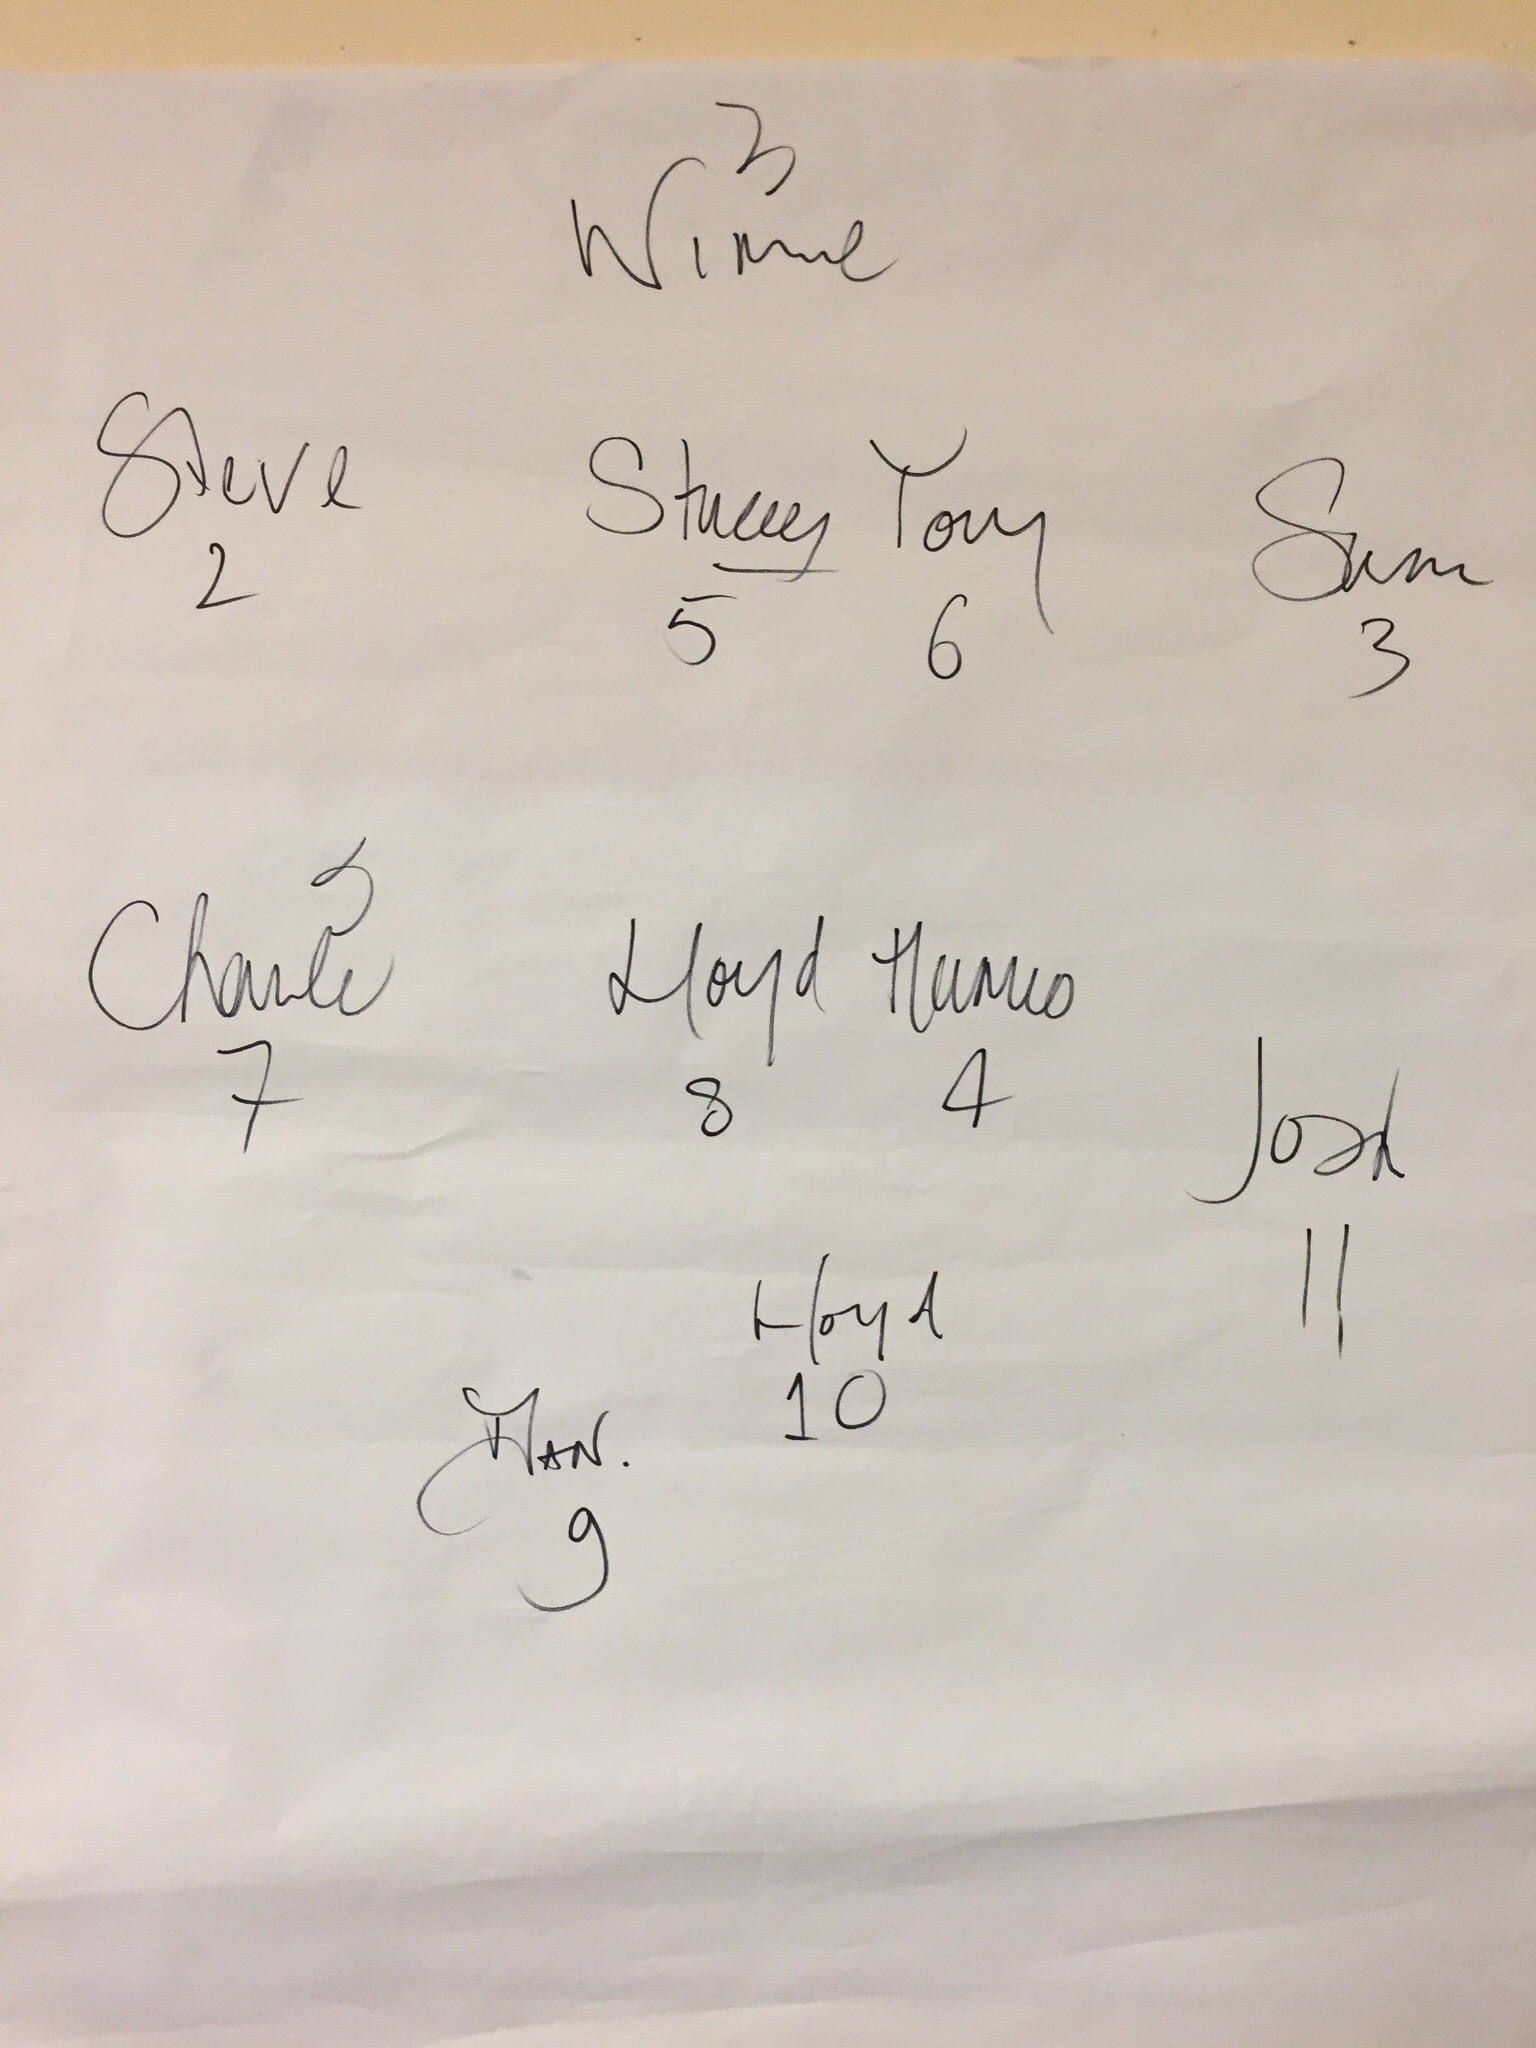 Winnie
Steve Stacey Tony Sam
2 5 6 3
Charlie Lloyd
7 8 4
Josh
11
Lloyd
10
9